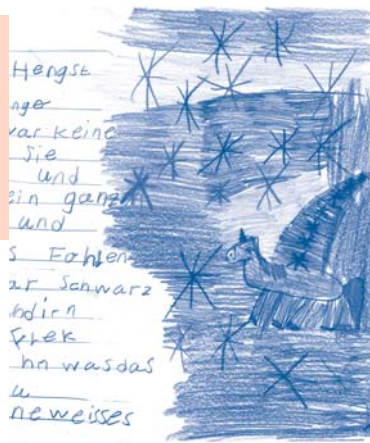 Hengst
nge
war keine
Sie
und
ein ganz
und
s Fohlen
ar Schwarz
ndirn
hn wasdas
u
neweisses